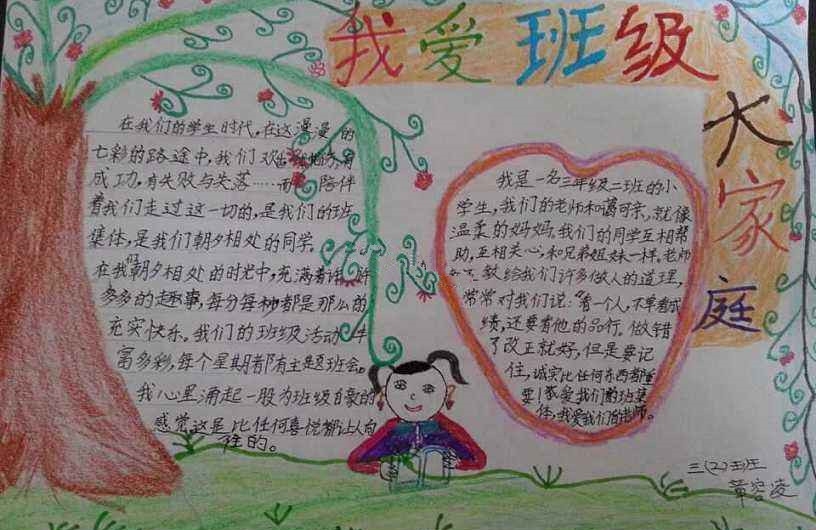 我爱班级
大家庭
在我们的学生时代,在这漫漫的
七彩的路途中,我们欢
成功,有失败与失落……而 陪伴
着我们走过这一切的,是我们的班
集体,是我们朝夕相处的同学.
在我们朝夕相处的时光中,充满着许许
多多的趣事,每分每秒都是那么的
充实快乐。我们的班级活动丰
富多彩,每个星期都有主题班会。
我心里涌起一股为班级自豪的
感觉这是比任何喜悦都让人向
往的。
我是一名三年级二班的小
学生,我们的老师和蔼可亲,就像
温柔的妈妈,我们的同学互相帮
助,互相关心,和兄弟姐妹一样,老师
教给我们许多做人的道理,
常常对我们说:“看一个人,不单看成
绩,还要看他的品行.做错
了改正就好,但是要记
住,诚实比任何东西都重
要!我爱我们的班集
体,我爱我们的老师。
三(2)班
黄容凌